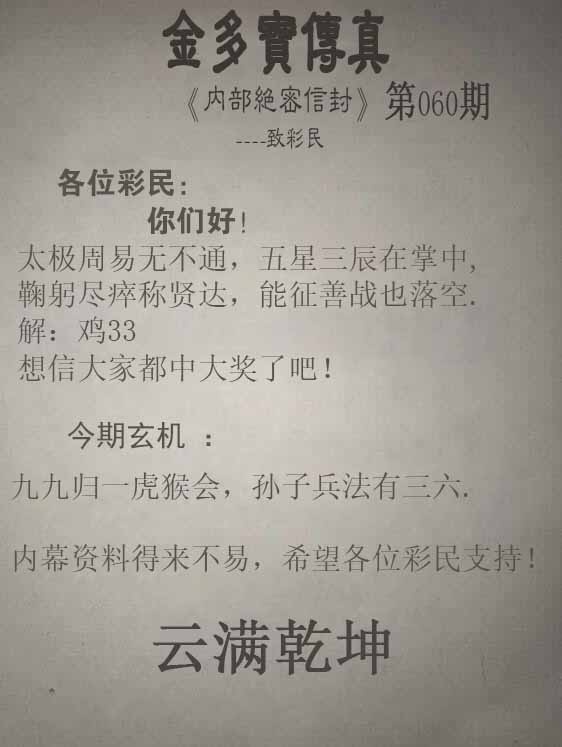 金多寶傳真
《内部絶密信封》第060期
----致彩民
各位彩民:
你们好!
太极周易无不通，五星三辰在掌中,
鞠躬尽瘁称贤达，能征善战也落空.
解：鸡33
想信大家都中大奖了吧!
今期玄机 ：
九九归一虎猴会，孙子兵法有三六.
内幕资料得来不易，希望各位彩民支持!
云满乾坤